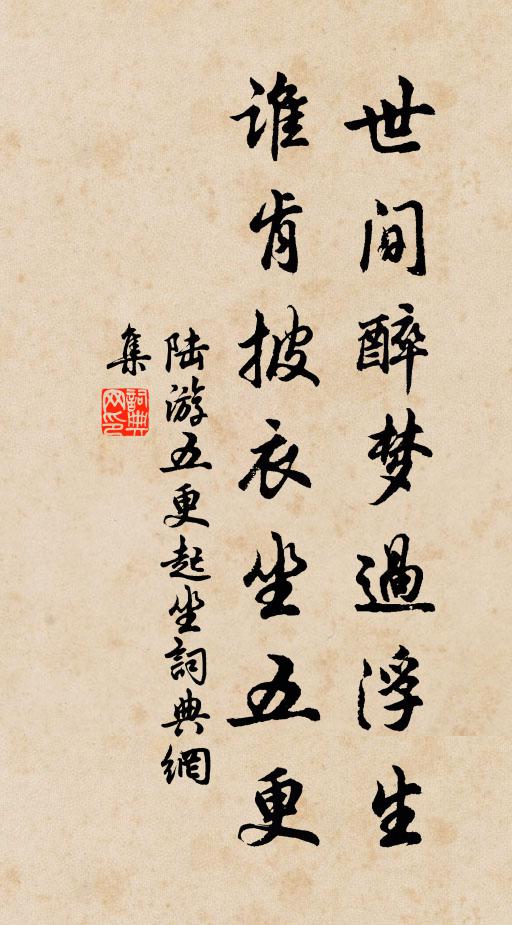 世间醉梦过浮生
谁肯披衣坐五更
陆游五更起坐詞典網
集
詞典
网印